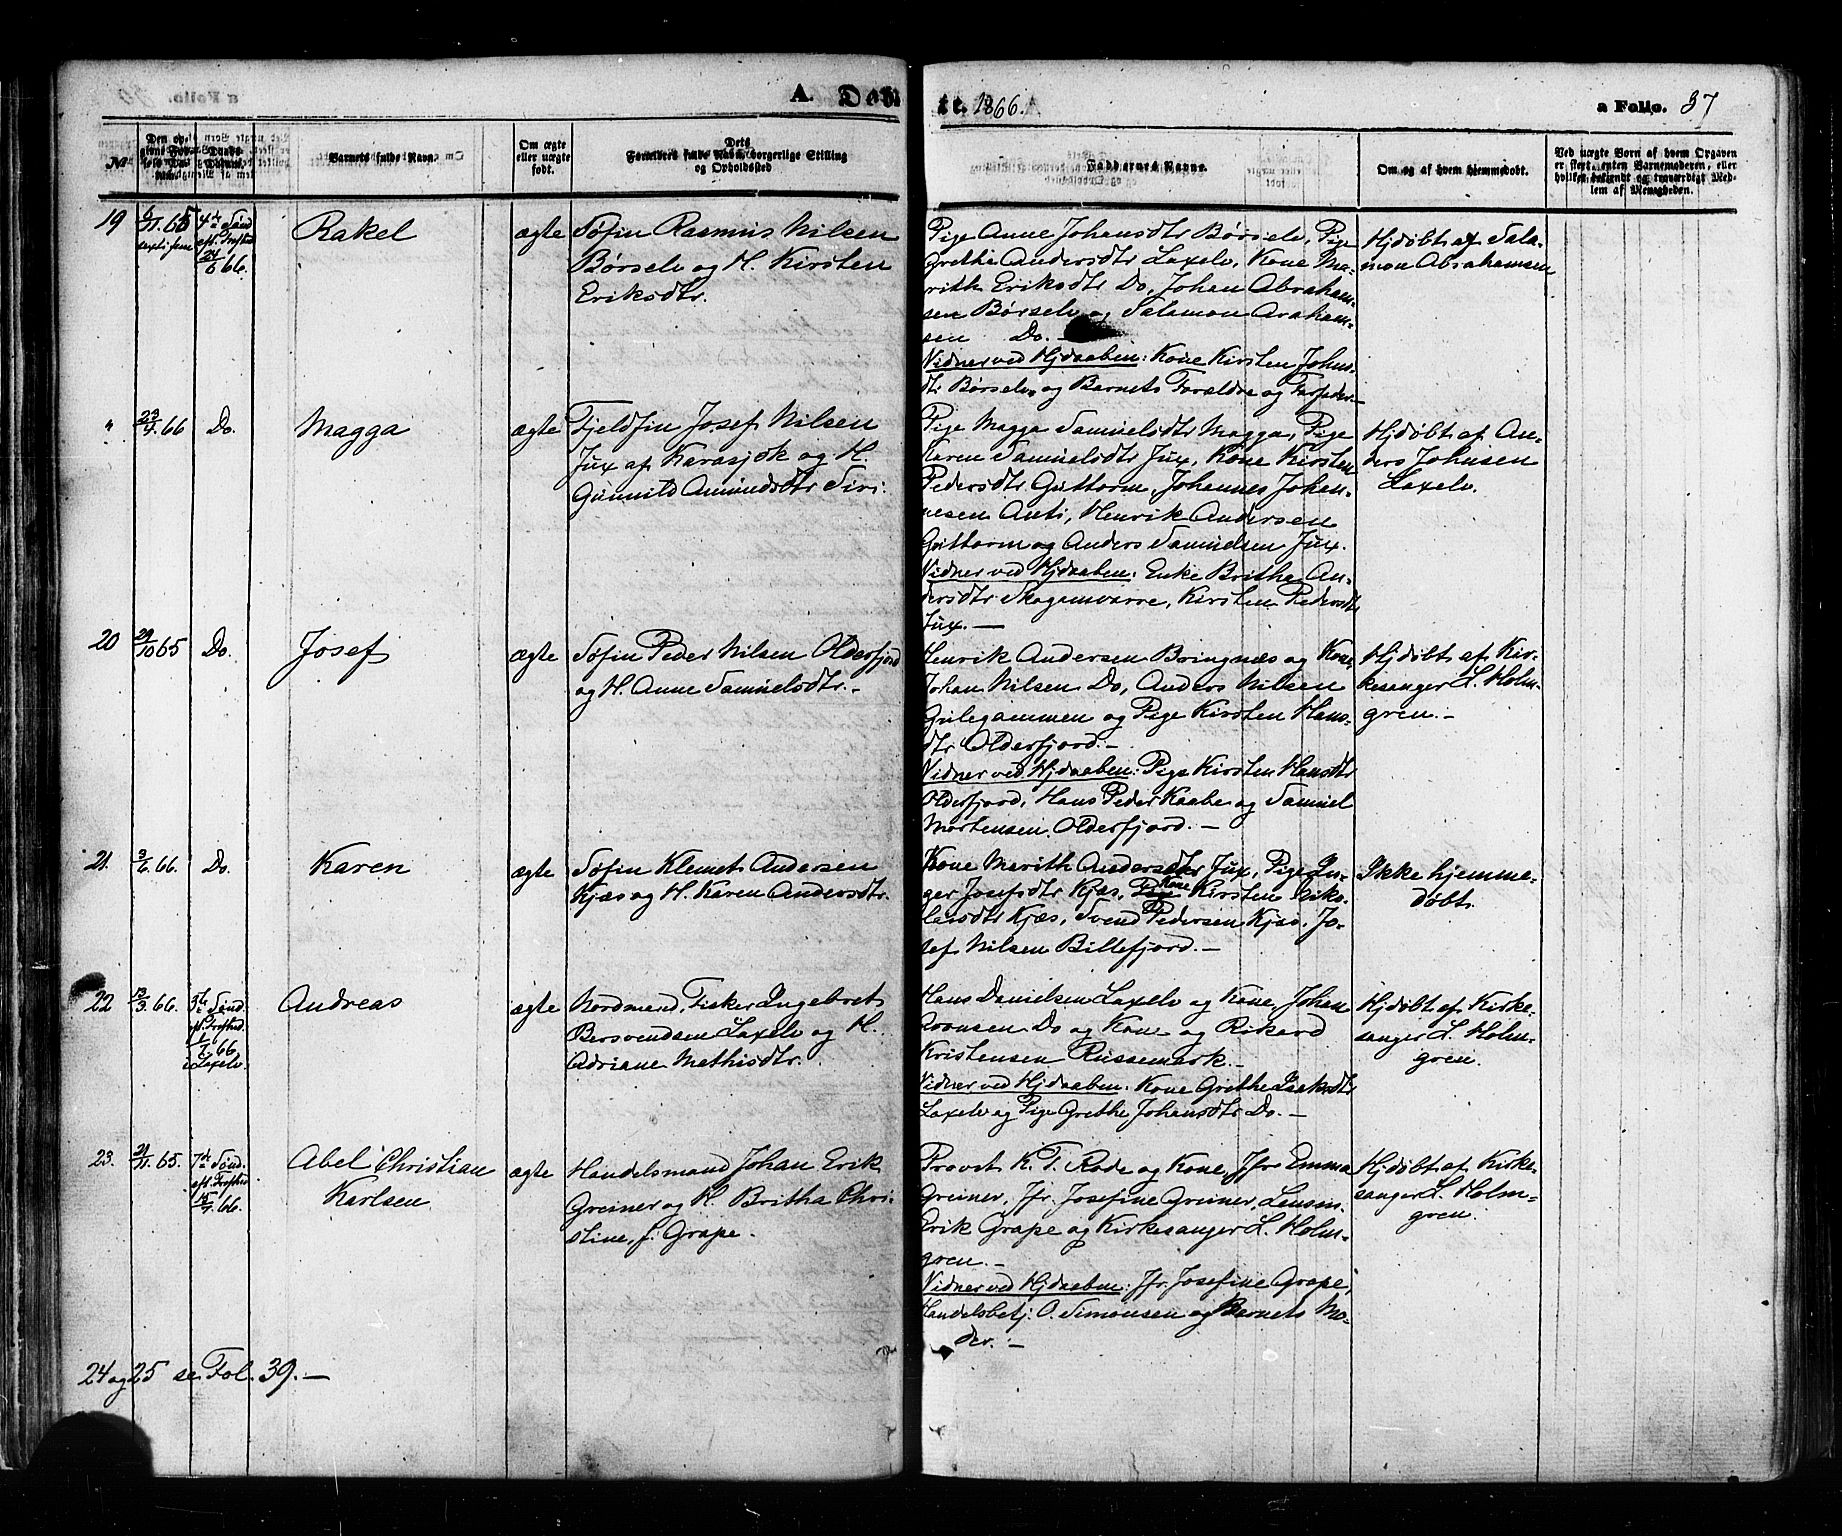 A. Døb-
te. 1866.
a Folio. 37
No
Barnets fulde Navn.
Om ægte
eller uægte
født.
Dets
Forældres fulde Navn, borgerlige Stilling
og Opholdssted
Faddernes Navne.
Om og af hvem hjemmedøbt.
Ved uægte Børn af hvem Opgaven
er skeet, enten Barnemoderen, eller
hvilket bekjendt og troværdigt Med-
lem af Menigheden.
19
4de Sønd
eft. Treft.
24/6 66.
Rakel
ægte
Søfin Rasmus Nilsen
Børselv og H. Kirsten
Eriksdtr.
Pige Anne Johansdtr Børselv, Pige
Grethe Andersdtr Laxelv, Kone Ma-
rith Eriksdtr Do, Johan Abraham-
sen Børselv og Salamon Araham-
sen Do.
Vidner ved Hjdaaben: Kone Kirsten Johns-
dtr Børselv og Barnets Forældre og Farfader.
Hjdøbt af Sala-
mon Abrahamsen
"
66
Do.
Magga
ægte
Fjeldfin Josef Nilsen
Jux af Karasjok og H.
Gunnild Amundsdtr Siri.
Pige Magga Samuelsdtr Magga, Pige
Karen Samuelsdtr Jux, Kone Kirsten
Pedersdtr Guttorm, Johannes Johan-
nesen Anti, Henrik Andersen
Guttorm og Anders Samuelsen Jux.
Vidner ved Hjdaaben: Enke Britha An-
dersdtr Skoganvarre, Kirsten Pedersdtr
Jux.
Hjdøbt af An-
ders Johnsen
Laxelv.
20
29/10 65
Do.
Josef
ægte
Søfin Peder Nilsen Olderfjord
og H. Anne Samuelsdtr.
Henrik Andersen Bringnæs og Kone
Johan Nilsen Do, Anders Nilsen
Gulegammen og Pige Kirsten Hans-
dtr Olderfjord.
Vidner ved Hjdaaben: Pige Kirsten Hansdtr
Olderfjord, Hans Peder Kaabe og Samuel
Mortensen Olderfjord.
Hjdøbt af Kir-
kesanger L. Holm-
gren.
21.
2/6. 66.
Do.
Karen
ægte
Søfin Klemet Andersen
Kjæs og H. Karen Andersdtr.
Kone Marith Andersdtr Jux, Pige In-
ger Josefsdtr Kjæs, Pige Kone Kirsten Nisko-
lesdtr Kjæs, Svend Pedersen Kjæs, Jo-
sef Nilsen Billefjord.
Ikke hjemme-
døbt.
22
13/3. 66.
5te Sønd
eft. Trefted
1/7. 66
i Laxelv.
Andreas
ægte
Nordmand, Fisker Ingebret
Bersvendsen Laxelv og H.
Adriane Mathisdtr.
Hans Danielsen Laxelv og Kone, Johan
Aronsen Do og Kone og Rikard
Kristensen Russemark.
Vidner ved Hjdaaben: Kone Grethe Isaksdtr
Laxelv og Pige Grethe Johansdtr Do.
Hjdøbt af Kirke-
sanger L. Holm-
gren.
23.
21/11. 65.
7de Sønd.
eft. Trefted
15/7. 66.
Abel Christian
Karlsen
ægte
Handelsmand Johan Erik
Greiner og H. Britha Chri-
stine, f. Grape.
Provst K. T. Rode og Kone, Jfr Emma
Greiner, Jfr. Josefine Greiner, Lensm.
Erik Grape og Kirkesanger L. Holm-
gren.
Vidner ved Hjdaaben: Jfr. Josefine Grape,
Handelsbetj. O. Simonsen og Barnets Mo-
der.
Hjdøbt af Kirke-
sanger L. Holm-
gren.
24 og 25 se Fol. 39.